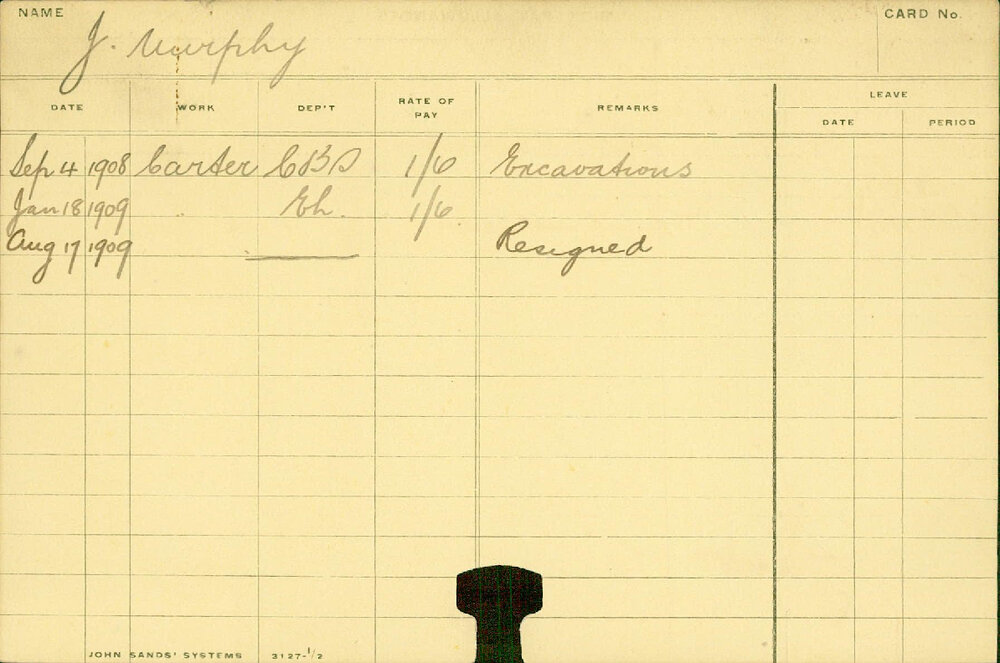 NAME CARD No.
J. Murphy
LEAVE
DATE WORK DEP'T RATE OF PAY REMARKS
DATE PERIOD
Sep 4 1908 Carter CBD 1/6 Excavations
Jan 18 1909 Eh. 1/6
Aug 17 1909 Resigned
JOHN SANDS' SYSTEMS 3127-1/2